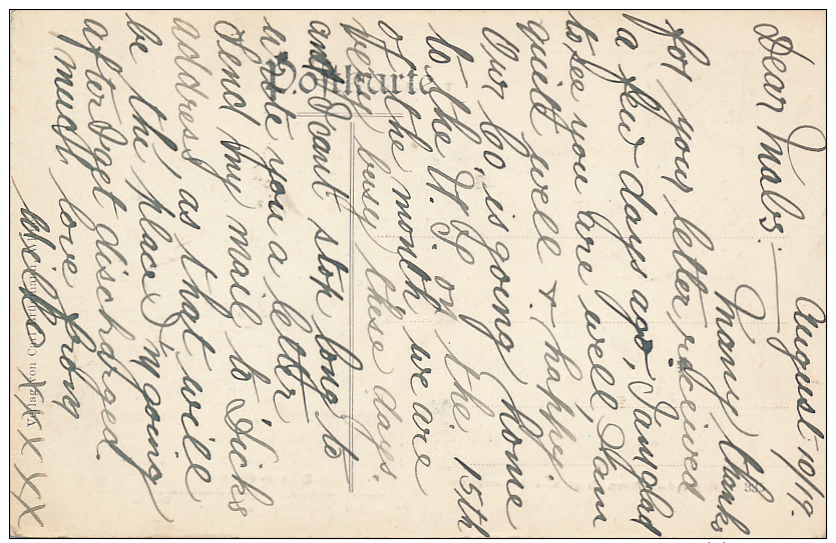 August 10/19.
Dear Mabs:—
Many thanks
for your letter, received
a few days ago, I am glad
to see you are well, I am
quite well & happy.
Our Co. is going home
to the U.S. on the 15th
of the month, we are
very busy these days.
and I cant stop long to
write you a letter
Send my mail to Dicks
address as that will
be the place I'm going
after I get discharged
much love from
X X X X
Postkarte